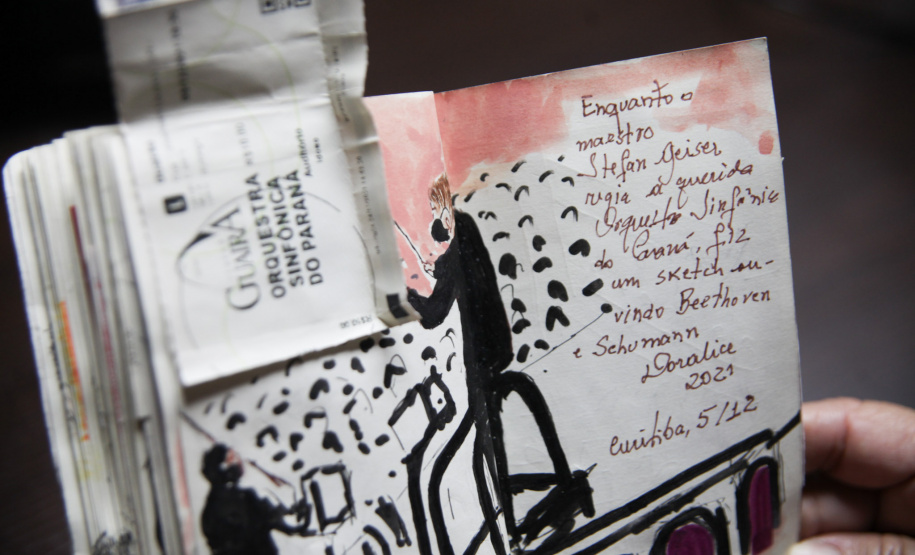 GUAÍRA
ORQUESTRA
SINFÔNICA
DO PARANÁ
Enquanto o
maestro
Stefan Geiser
regia a querida
Orquestra Sinfônica
do Paraná, fiz
um sketch ou-
vindo Beethoven
e Schumann
Doralice
2021
Curitiba, 5/12